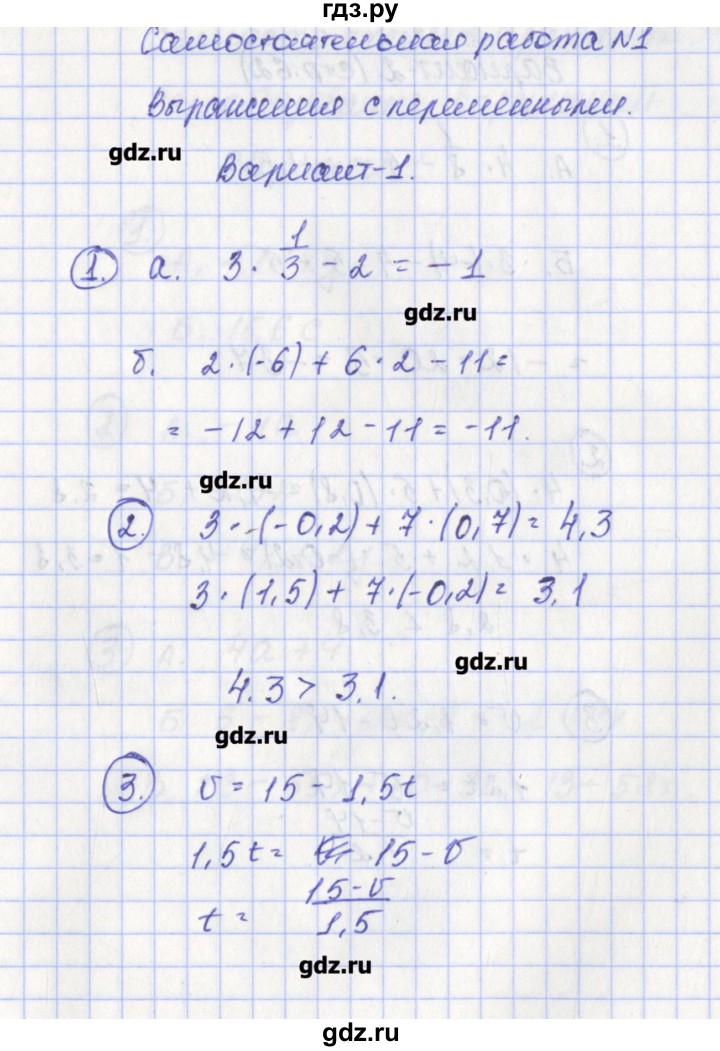 гдз.ру
Самостоятельная работа N1
Выражения с переменными.
gdz.ru
Вариант-1.
1. а. 3 · 1/3 - 2 = -1
gdz.ru
б. 2·(-6) + 6·2 - 11 =
= -12 + 12 - 11 = -11.
gdz.ru
2. 3 · (-0,2) + 7·(0,7) = 4,3
3·(1,5) + 7·(-0,2) = 3,1
gdz.ru
4.3 > 3,1.
gdz.ru
3. v = 15 - 1,5t
1,5t = 15 - v
t = (15-v)/1,5
gdz.ru
gdz.ru